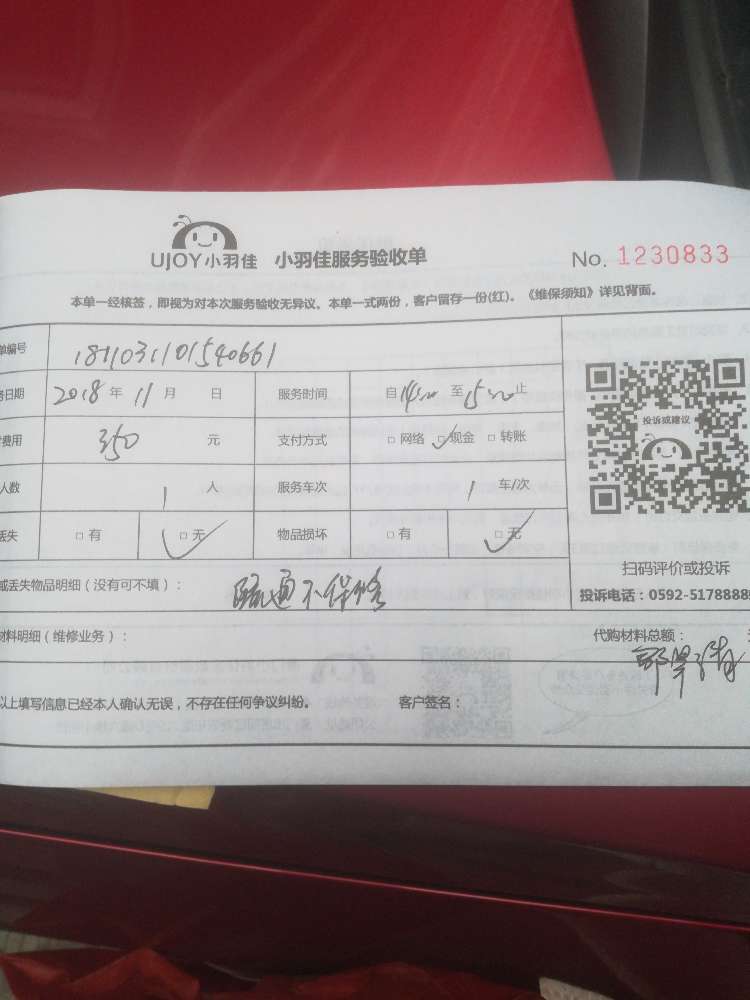 UJOY小羽佳 小羽佳服务验收单 No. 1230833
本单一经核签，即视为对本次服务验收无异议。本单一式两份，客户留存一份(红)。《维保须知》详见背面。
单编号 1811031101540661
务日期 2018 年 11 月 日 服务时间 自 14:00 至 15:00 止
费用 350 元 支付方式 □ 网络 □ 现金 □ 转账
人数 1 人 服务车次 1 车/次
投诉或建议
丢失 □ 有 □ 无 物品损坏 □ 有 □ 无
扫码评价或投诉
或丢失物品明细（没有可不填）： 疏通不保修
投诉电话：0592-5178888
材料明细（维修业务）： 代购材料总额：
以上填写信息已经本人确认无误，不存在任何争议纠纷。 客户签名：